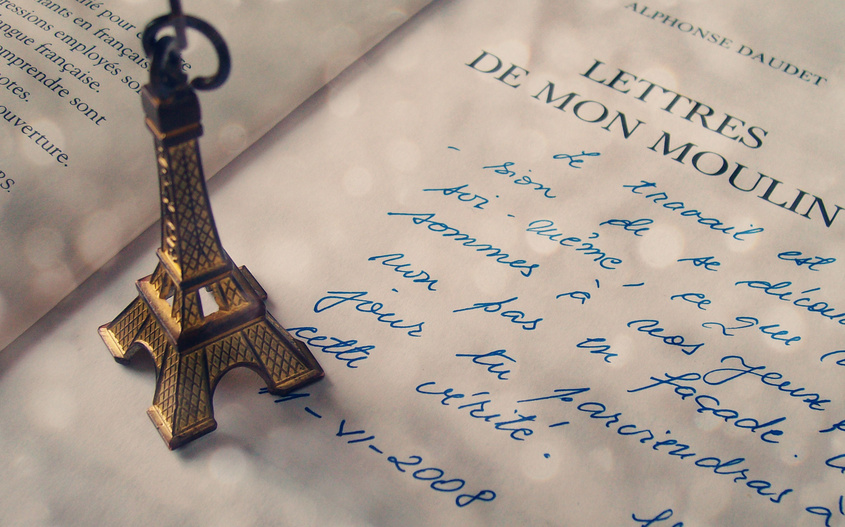 lié pour
ants en français
ressions employés
ngue française.
omprendre sont
otes.
ouverture.
RS.
ALPHONSE DAUDET
LETTRES
DE MON MOULIN
Le travail est
- sion de se décou
soi-même, ce que
sommes à nos yeux p
non pas en façade.
jour tu parviendras à
cette vérité.
VI-2008